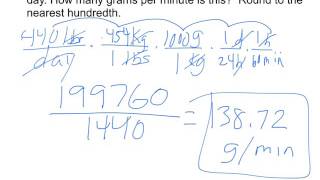 day. How many grams per minute is this? Round to the
nearest hundredth.
440 lbs . .454 kg . 1000g . 1 d . 1h
day 1 lbs 1 kg 24h 60min
199760
1440
= 138.72
g/min